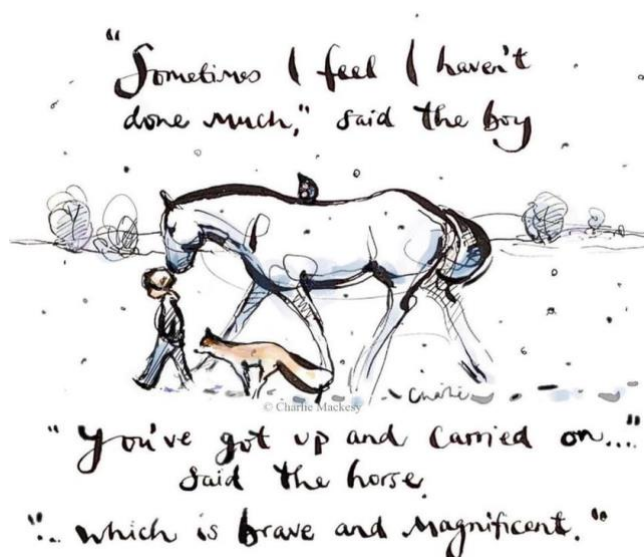 "Sometimes I feel I haven't
done much," said the boy
Charlie
© Charlie Mackesy
"You've got up and carried on..."
said the horse.
".. which is brave and magnificent."